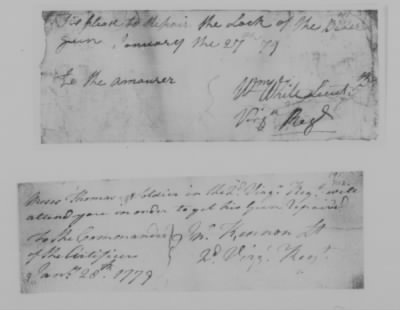 please to Repair the Lock of the
Gun January the 27th 79
To the amourer
Wm White Lieut
Virga Regt
Moses Thomas, a Soldier in the 2d Virga Regt will
attend you in order to get his Gun repaired
To the Commander
of the Artificers
Jany 28th 1779
Wm Kennon Lt
2d Virga Regt